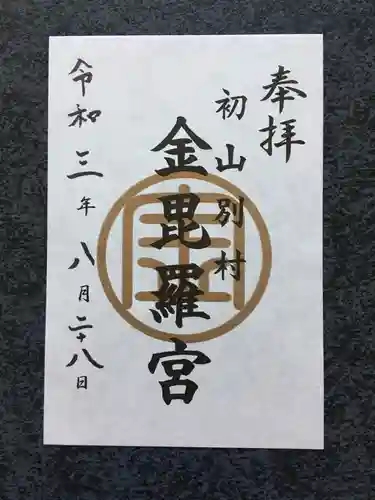 奉拝
初山別村
金毘羅宮
令和三年八月二十八日